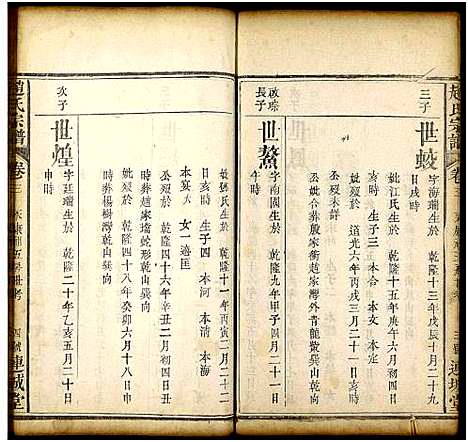 趙氏宗譜
卷三
三子
世蛟
字海瑞生於 乾隆十三年戊辰十月二十九
日戌時
妣江氏生於 乾隆十五年庚午六月
時 生子三 本合 本女 本定
妣歿於 道光六年丙戌三月二十一日亥時
公歿未詳
公妣合葬殷家衝趙家灣外青龍嘴巽山乾向
啟琮
長子
世鰲
字南園生於 乾隆九年甲子四月二十一日
午時
妣 氏生於 乾隆十一年丙寅二月二十二
日亥時 生子四 本河 本清 本海
本宴 女一適匡
公歿於 乾隆四十六年辛丑二月初四日丑
時葬趙家塆蛇形乾山巽向
妣歿於 乾隆四十八年癸卯六月十八日申
時葬楊樹灣乾山巽向
次子
世煌
字廷瑞生於 乾隆二十年乙亥五月二十日
申時
趙氏宗譜
卷三
連城堂